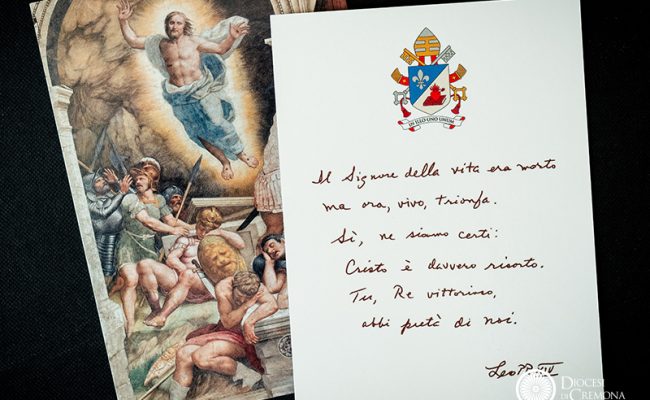 IN ILLO UNO UNUM
Il Signore della vita era morto
ma ora, vivo, trionfa.
Sì, ne siamo certi:
Cristo è davvero risorto.
Tu, Re vittorioso,
abbi pietà di noi.
Leo PP. XIV
DIOCESI
DI CREMONA